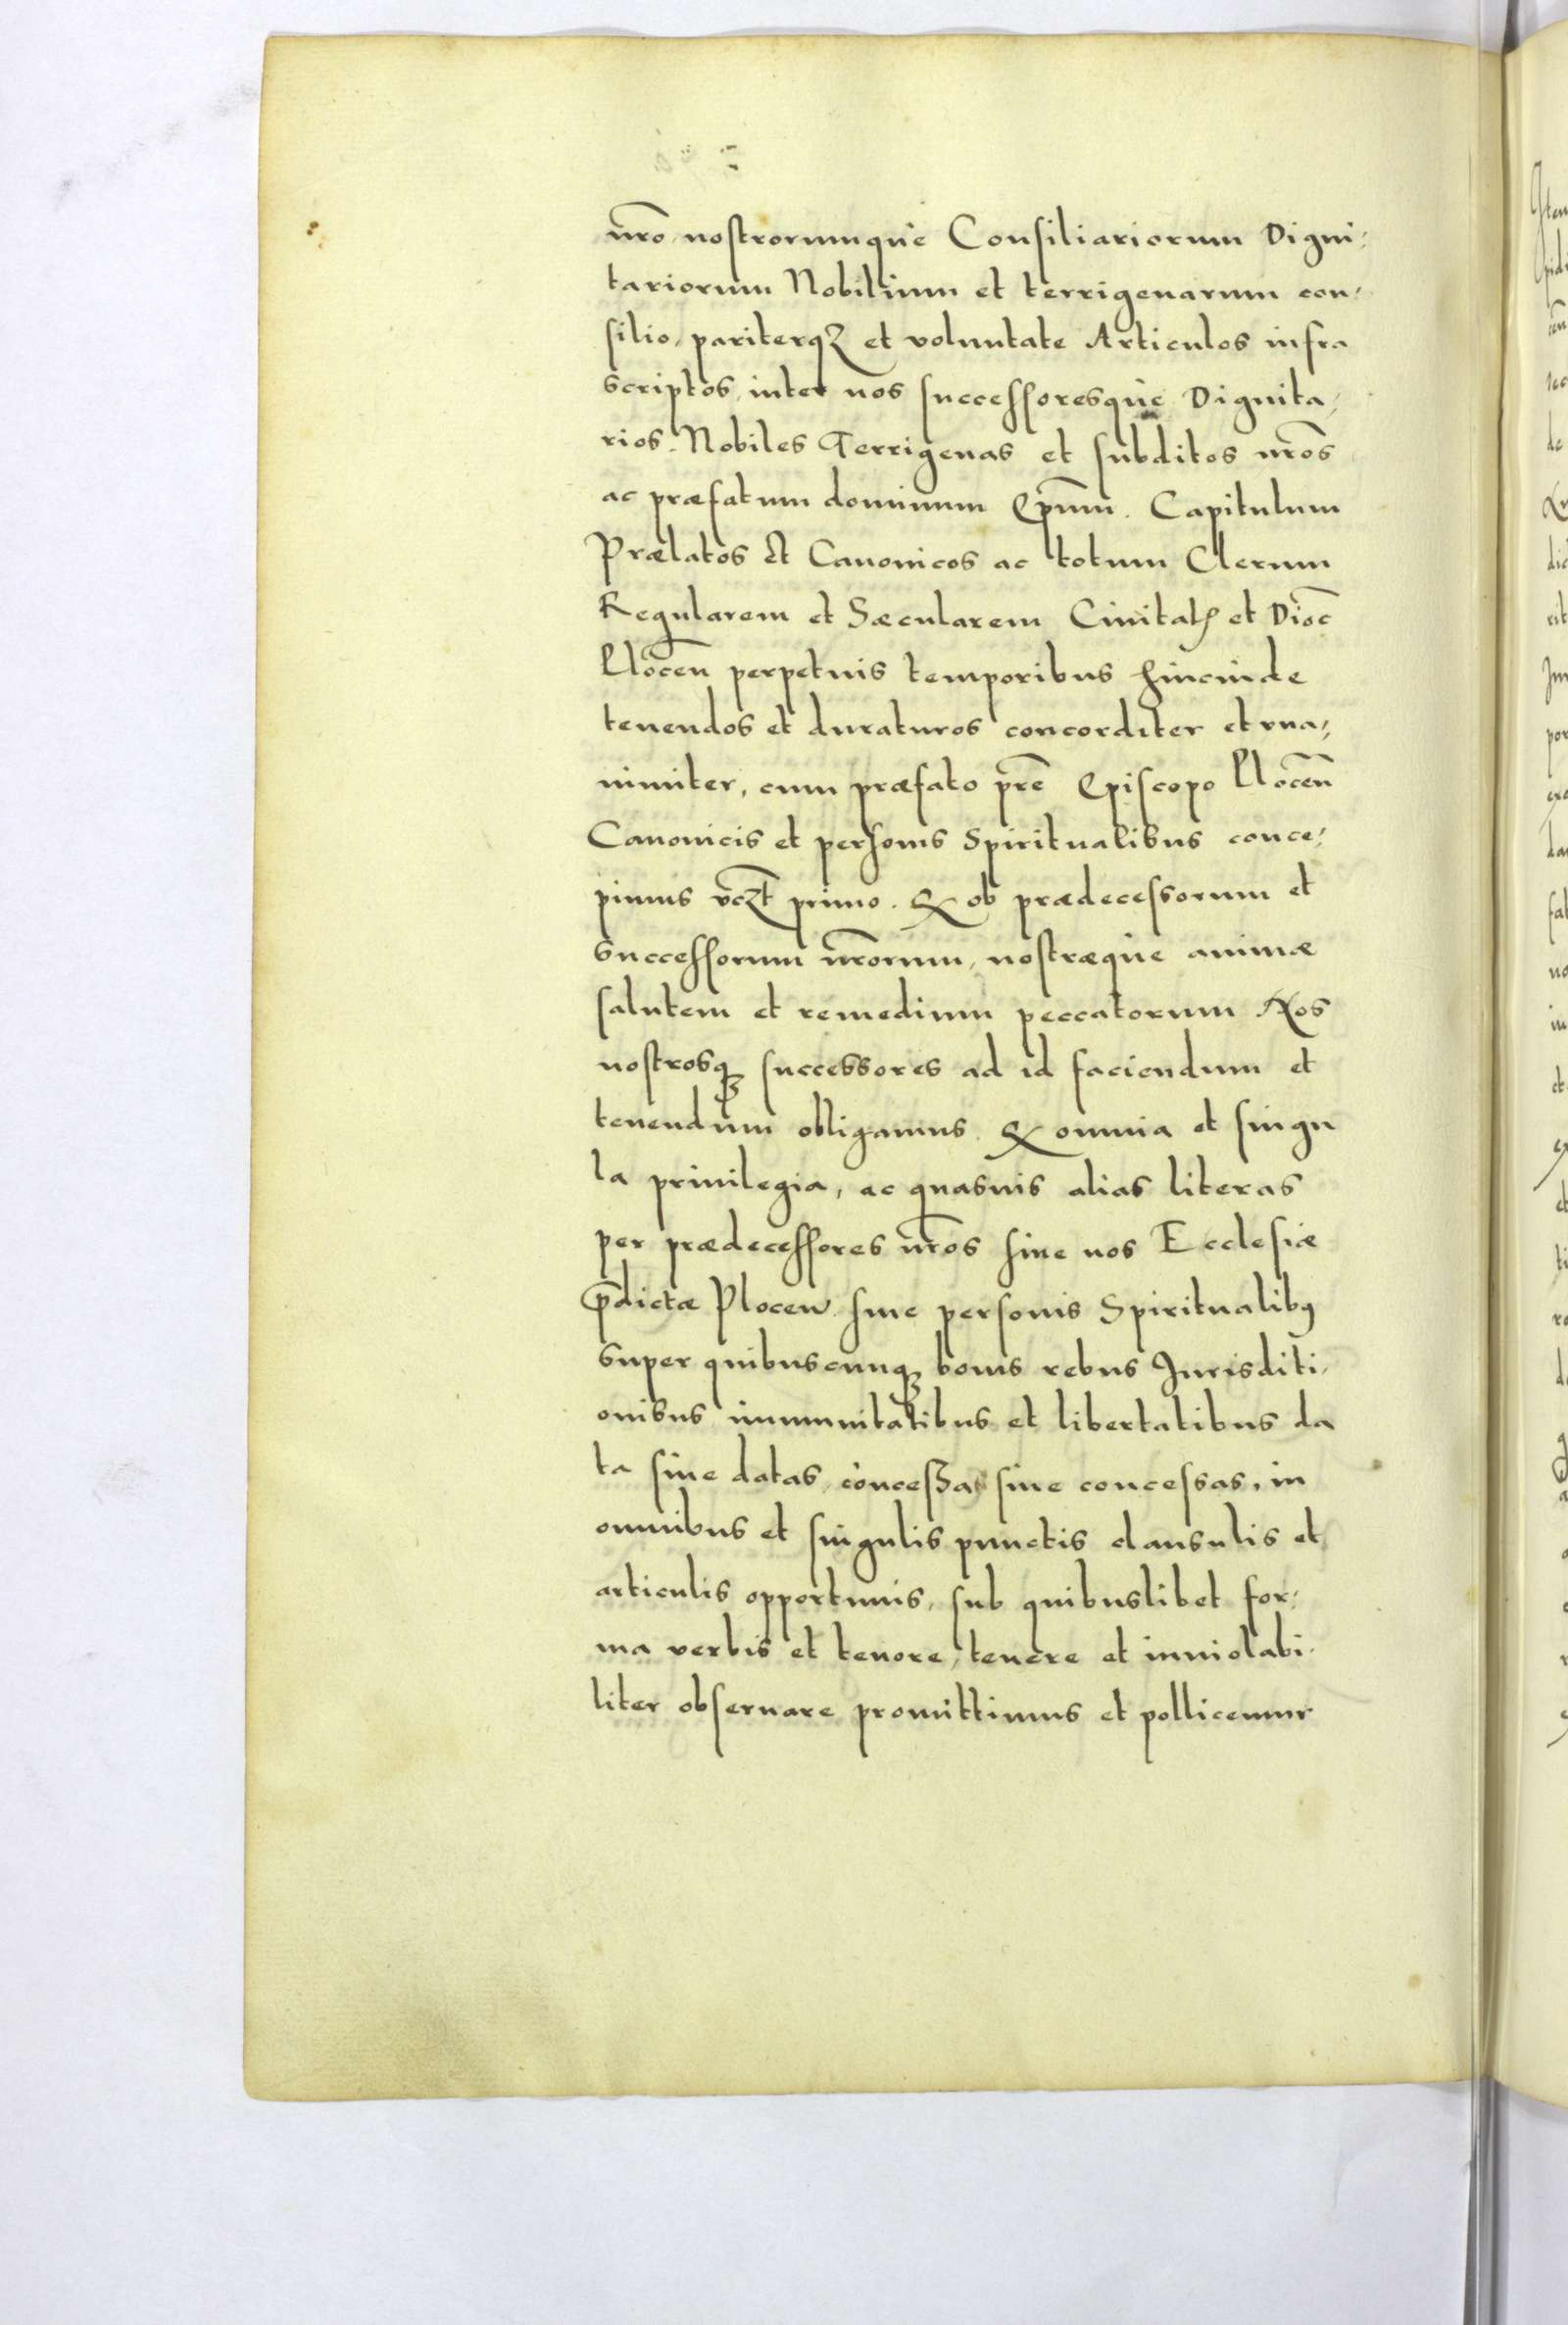 nr̄o nostrorumquè Consiliariorum Digni:
tariorum Nobilium et terrigenarum con,
silio, pariterqꝫ et voluntate Articulos infra
scriptos, inter nos successoresquè Dignita,
rios. Nobiles Terrigenas et subditos nr̄os
ac præfatum dominum Ep̄um. Capitulum
Prælatos et Canonicos ac totum Clerum
Regularem et Sæcularem Ciuitatꝭ et Dioc̄
Plocen̄ perpetuis temporibus hincinde
tenendos et duraturos concorditer et vna,
nimiter, cum præfato pr̄e Episcopo Plocen̄
Canonicis et personis Spiritualibus conce,
pimus vcꝫt̄ primo. Et ob prædecessorum et
successorum nr̄orum, nostræquè animæ
salutem et remedium peccatorum Nos
nostrosqꝫ successores ad id faciendum et
tenendum obligamus. Et omnia et singu
la priuilegia, ac quasuis alias literas
per prædecessores nr̄os siue nos Ecclesiæ
p̄dictæ Plocen siue personis Spiritualibꝰ
super quibuscunqꝫ bonis rebus Jurisditi,
onibus immunitatibus et libertatibus da
ta siue datas, còncessa siue concessas, in
omnibus et singulis punctis clausulis et
articulis opportunis, sub quibuslibet for:
ma verbis et tenore, tenere et inuiolabi.
liter obseruare promittimus et pollicemur